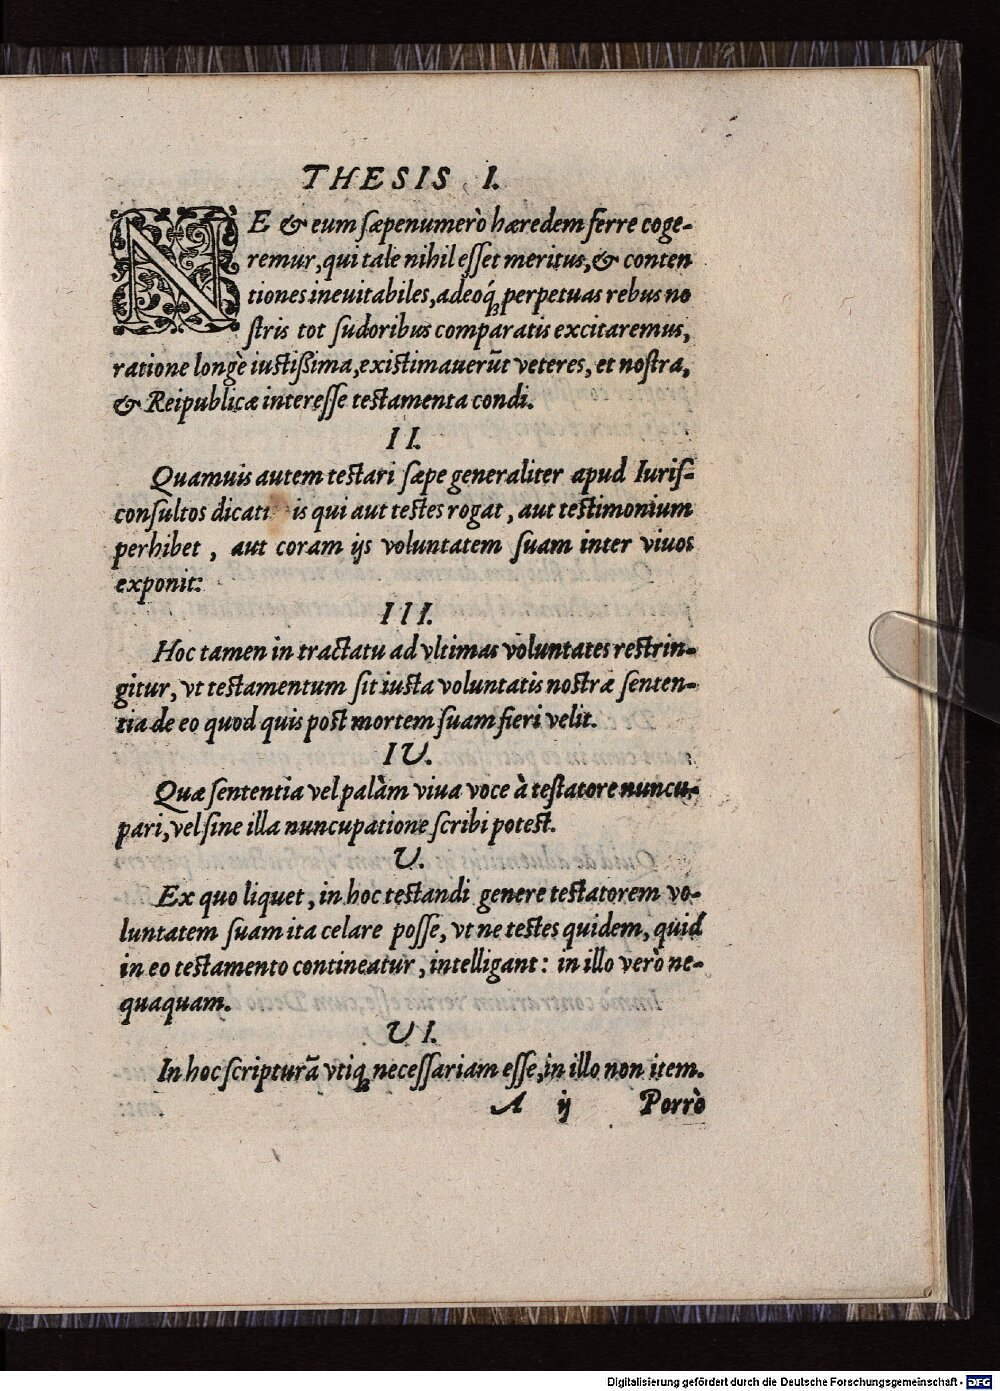 THESIS I.
NE & eum sæpenumerò hæredem ferre coge-
remur, qui tale nihil esset meritus, & conten
tiones ineuitabiles, adeoq́; perpetuas rebus no
stris tot sudoribus comparatis excitaremus,
ratione longè iustißima, existimauerũt veteres, et nostra,
& Reipublicæ interesse testamenta condi.
II.
Quamuis autem testari sæpe generaliter apud Iuris-
consultos dicat is qui aut testes rogat, aut testimonium
perhibet, aut coram ijs voluntatem suam inter viuos
exponit:
III.
Hoc tamen in tractatu ad vltimas voluntates restrin-
gitur, vt testamentum sit iusta voluntatis nostræ senten-
tia de eo quod quis post mortem suam fieri velit.
IV.
Quæ sententia vel palàm viua voce à testatore nuncu-
pari, vel sine illa nuncupatione scribi potest.
V.
Ex quo liquet, in hoc testandi genere testatorem vo-
luntatem suam ita celare posse, vt ne testes quidem, quid
in eo testamento contineatur, intelligant: in illo verò ne-
quaquam.
VI.
In hoc scripturã vtiq; necessariam esse, in illo non item.
A ij Porrò
Digitalisierung gefördert durch die Deutsche Forschungsgemeinschaft - DFG